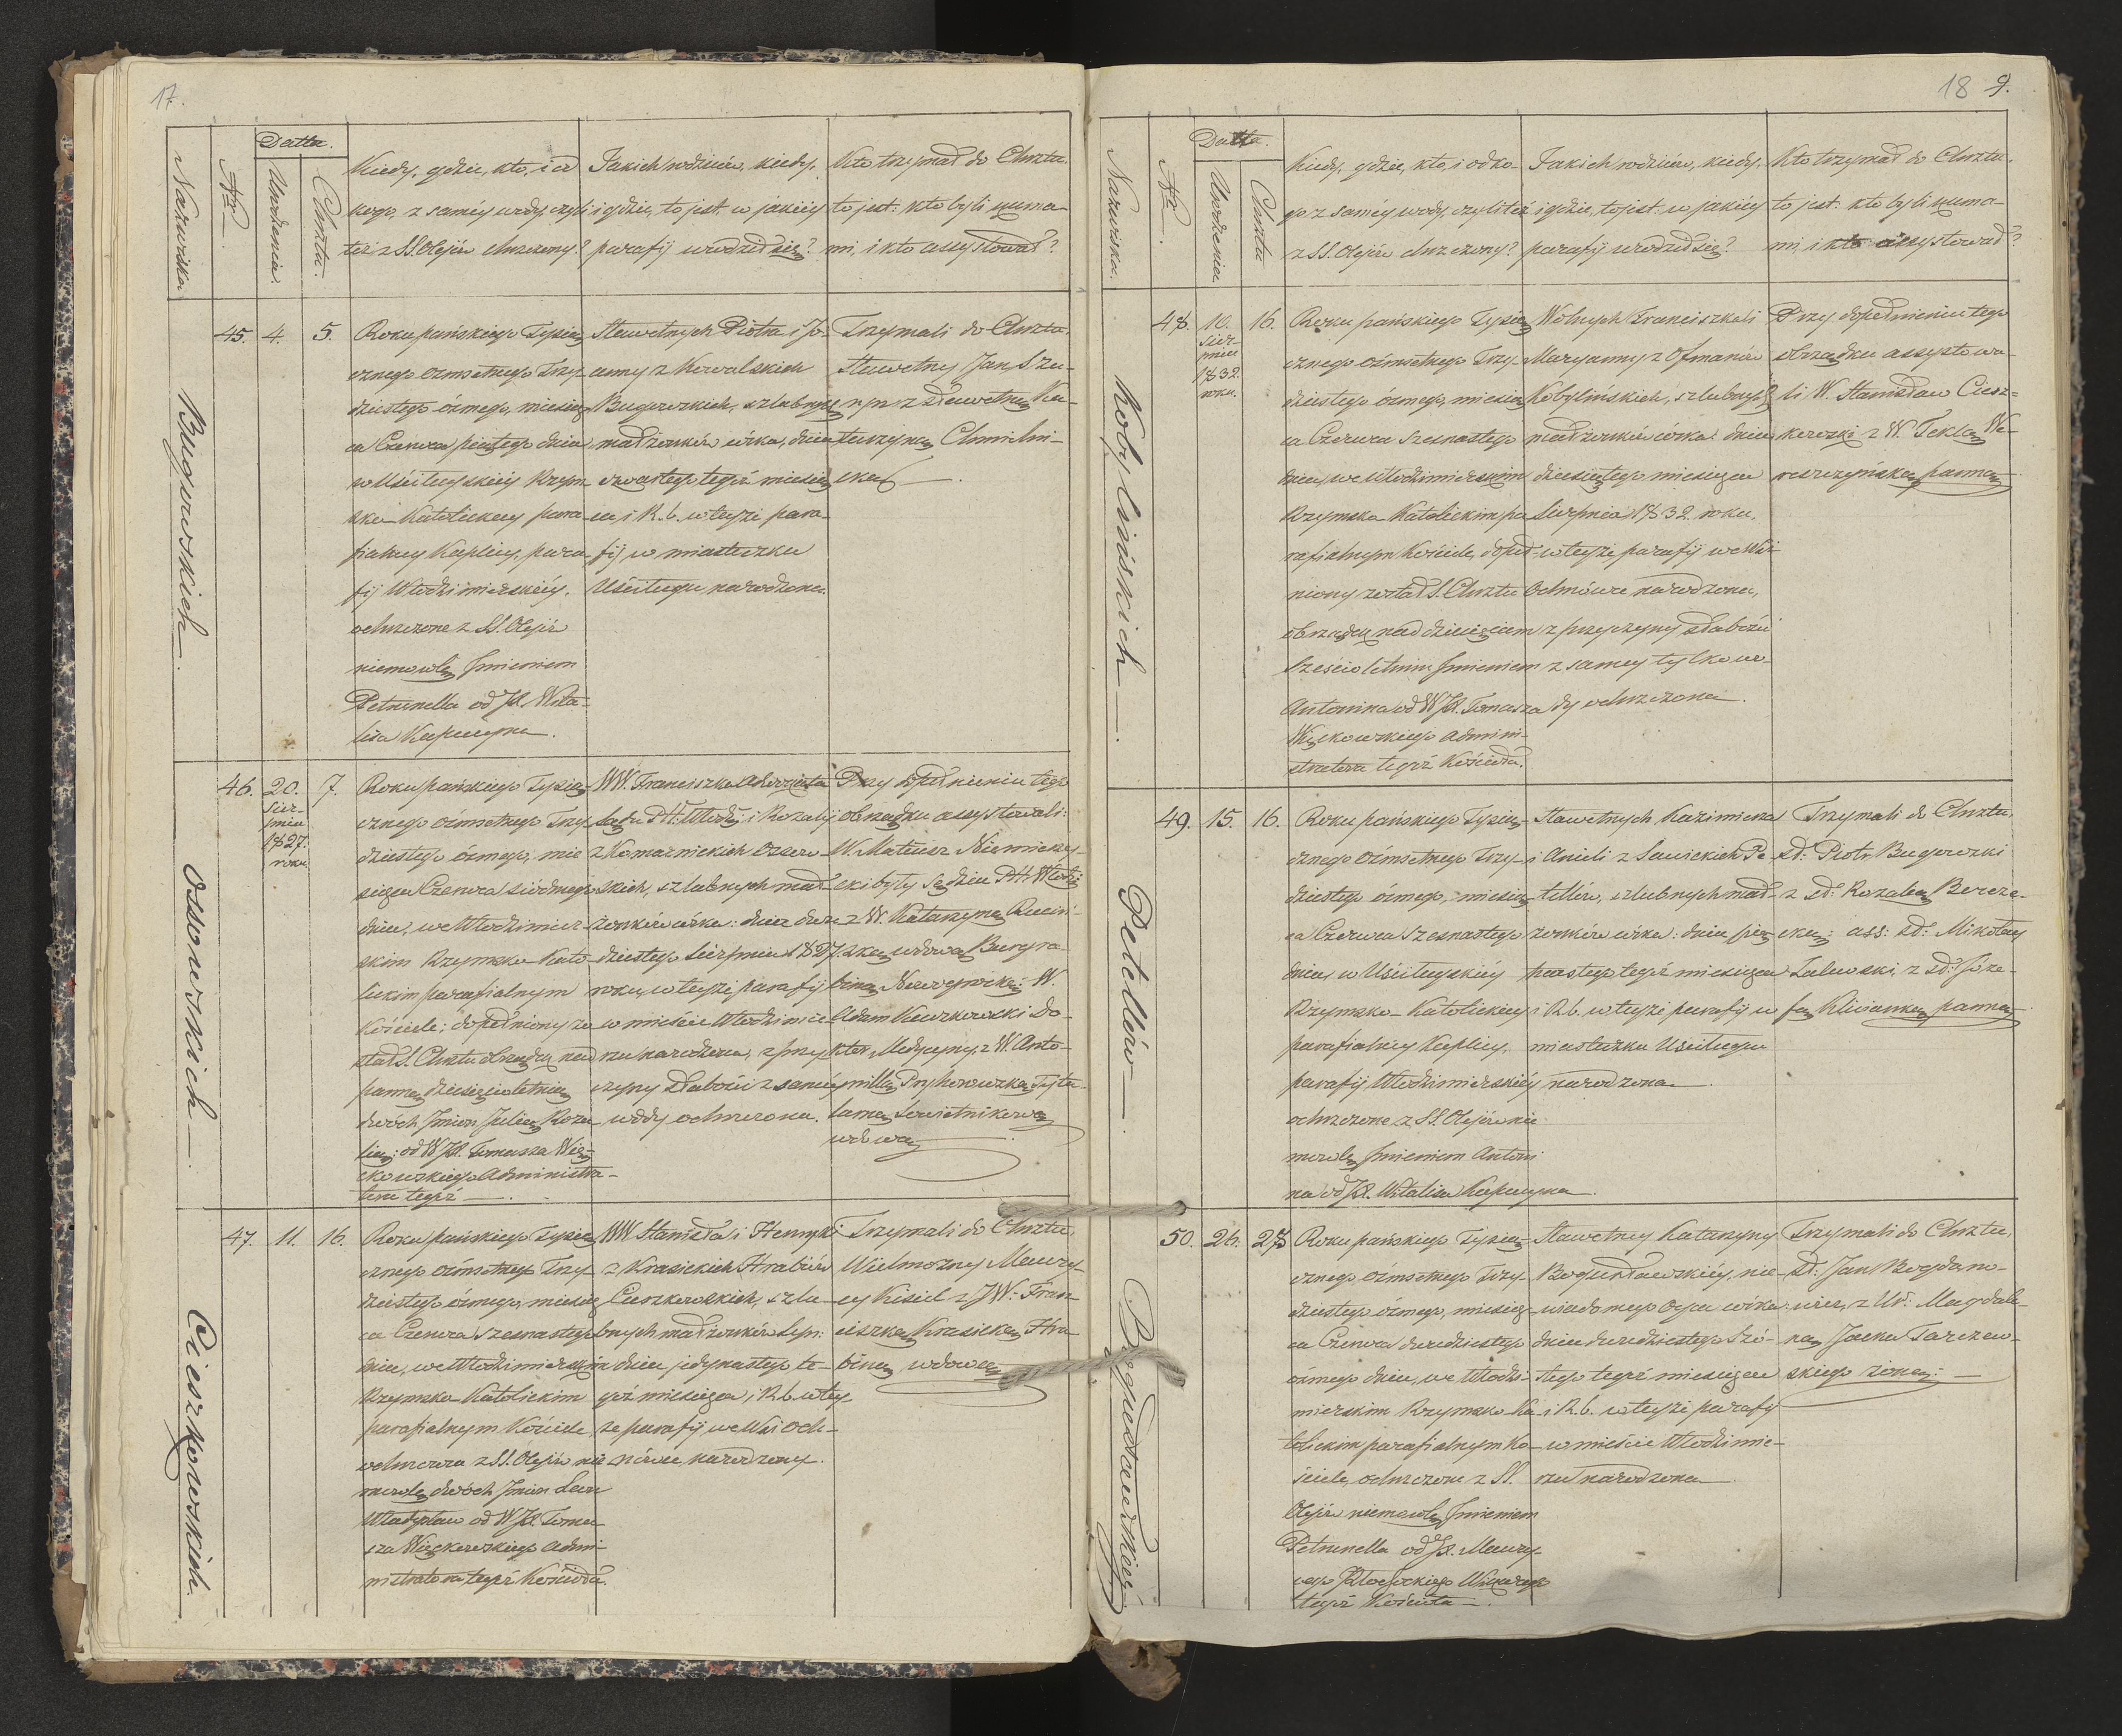 17.
Datta.
Nazwiska
Nr.
Urodzenia
Chrztu.
Kiedy, gdzie, kto, i od
kogo, z saméy wody, czyli
téż z SS. Olejów chrzczony?
Jakich rodziców, kiedy,
i gdzie, to jest: w jakiéy
parafij urodził się?
Kto trzymał do Chrztu.
to jest: kto byli kuma-
mi, i kto assystował?
Bugowskich
45. 4. 5.
Roku pańskiego Tysią-
cznego ośmsetnego Trzy-
dziestego ósmego, miesią-
ca Czerwca piątego dnia
w Uściługskiéy Rzym-
sko-Katolickiey para-
fialney Kaplicy, para-
fij Włodzimierskiéy.
ochrzczone z SS. Olejów
niemowlę Imieniem
Petrunella od JX. Wita-
lisa Kapucyna.
Sławetnych Piotra i Jo-
anny z Kowalskich
Bugowskich, szlubnych
małżonków córka, dnia
czwartego tegoż miesią-
ca i R. b. w teyże para-
fij w miasteczku
Uściługu narodzona.
Trzymali do Chrztu.
Sławetny Jan Szu-
z Sławetną Ka-
tarzyną Chmielni-
cką.
Ossowskich
46. 20. 7.
Sier-
pnia
1827.
roku
Roku pańskiego Tysią-
cznego ośmsetnego Trzy-
dziestego ósmego, mie-
siąca Czerwca siódmego
dnia, we Włodzimier-
skim Rzymsko-Kato-
lickim parafialnym
Kościele; dopełniony zo-
stał S. Chrztu obrządek nad
panną dziesięcioletnią
dwóch Imion Julią Roza-
lią; od WJX. Tomasza Wię-
ckowskiego Administra-
tora tegoż
WW. Franciszka Adwokata
Sądu PH. Włodz: i Rozalij
z Komarnickich Ossow-
skich, szlubnych mał-
żonków córka: dnia dwu-
dziestego Sierpnia 1827.
roku, w teyże parafij
w mieście Włodzimie-
rzu narodzona, z przy-
czyny słabości z saméy
wody ochrzczona.
Przy dopełnieniu tego
obrządku assystowali:
W. Mateusz Niemierzy-
cki były Sędzia PH. Włodz:
z W. Katarzyną Rucin-
ską wdową Burgra-
biną Nowogrodzką: W.
Adam Kaczkowski Do-
ktor Medycyny, z W. Anto-
nillą Przyborowską Tytu-
larną Sowietnikową
wdową
Cieszkowskich.
47. 11. 16.
Roku pańskiego Tysią-
cznego ośmsetnego Trzy-
dziestego ósmego, miesią-
ca Czerwca szesnastego
dnia, we Włodzimierskim
Rzymsko-Katolickim
parafialnym Kościele
ochrzczona z SS. Olejów nie-
mowlę dwóch Imion Leon
Władysław od WJX. Toma-
sza Więckowskiego Admi-
nistratora tegoż Kościoła.
WW. Stanisła: i Henryki
z Krasickich Hrabiów
Cieszkowskich, szlu-
bnych małżonków Syn:
dnia jedynastego te-
goż miesiąca, i R. b. w tey-
że parafij we Wsi Och-
nówce narodzony.
Trzymali do Chrztu,
Wielmożny Maury-
cy Kisiel z JW. Fran-
ciszką Krasicką Hra-
biną wdową
18 9.
Datta.
Nazwiska.
Nr.
Urodzenia
Chrztu
Kiedy, gdzie, kto, i od ko-
go z saméy wody, czyli téż
z SS. Olejów chrzczony?
Jakich rodziców, kiedy,
i gdzie, to jest: w jakiéy
parafij urodził się?
Kto trzymał do Chrztu.
to jest: kto byli kuma-
mi, i kto assystował?
Kobylińskich
48. 10. 16.
Sier-
pnia
1832.
roku.
Roku pańskiego Tysią-
cznego ośmsetnego Trzy-
dziestego ósmego, miesią-
ca Czerwca szesnastego
dnia, we Włodzimierskim
Rzymsko-Katolickim pa-
rafialnym Kościele, dopeł-
niony został S. Chrztu
obrządek nad dziecięciem
sześcioletnim Imieniem
Antonina od WJX. Tomasza
Więckowskiego Admini-
stratora tegoż Kościoła.
Wolnych Franciszka i
Maryanny z Ofmanów
Kobylińskich, szlubnych
małżonków córka: dnia
dziesiątego miesiąca
Sierpnia 1832. roku.
w teyże parafij we Wsi
Ochnówce narodzona,
z przyczyny słabości
z samey tylko wo-
dy ochrzczona.
Przy dopełnieniu tego
obrządku assystowa-
li W. Stanisław Ciesz-
kowski z W. Teklą We-
reszczyńską panną
Petellów
49. 15. 16.
Roku pańskiego Tysią-
cznego ośmsetnego Trzy-
dziestego ósmego, miesią-
ca Czerwca szesnastego
dnia, w Uściługskiéy
Rzymsko-Katolickiey
parafialney Kaplicy,
parafij Włodzimierskiéy
ochrzczone z SS. Olejów nie-
mowlę Imieniem Antoni-
na od JX. Witalisa Kapucyna.
Sławetnych Kazimierza
i Anieli z Sawickich Pe-
tellów, szlubnych mał-
żonków córka: dnia pię-
tnastego tegoż miesiąca
i R. b. w teyże parafij w
miasteczku Uściługu
narodzona
Trzymali do Chrztu,
sł: Piotr Bugowski
z sł: Rozalią Bereze-
cką; ass: sł: Mikołay
Zalewski, z sł: Józe-
fą Kliciankę panną
Bogusławskiéy
50. 26. 28
Roku pańskiego Tysią-
cznego ośmsetnego Trzy-
dziestego ósmego, miesią-
ca Czerwca dwudziestego
ósmego dnia, we Włodzi-
mierskim Rzymsko-Ka-
tolickim parafialnym Ko-
ściele, ochrzczone z SS.
Olejów niemowlę Imieniem
Petrunella od JX. Maury-
cego Wikarego
tegoż Kościoła
Sławetney Katarzyny
Bogusławskiéy, nie-
wiadomego Oyca córka:
dnia dwudziestego szó-
stego tegoż miesiąca
i R. b. w teyże parafij
w mieście Włodzimie-
rzu narodzona
Trzymali do Chrztu,
sł: Jan Bogdano-
wicz, z Ur: Magdale-
ną Jacka Tarczew-
skiego żoną: